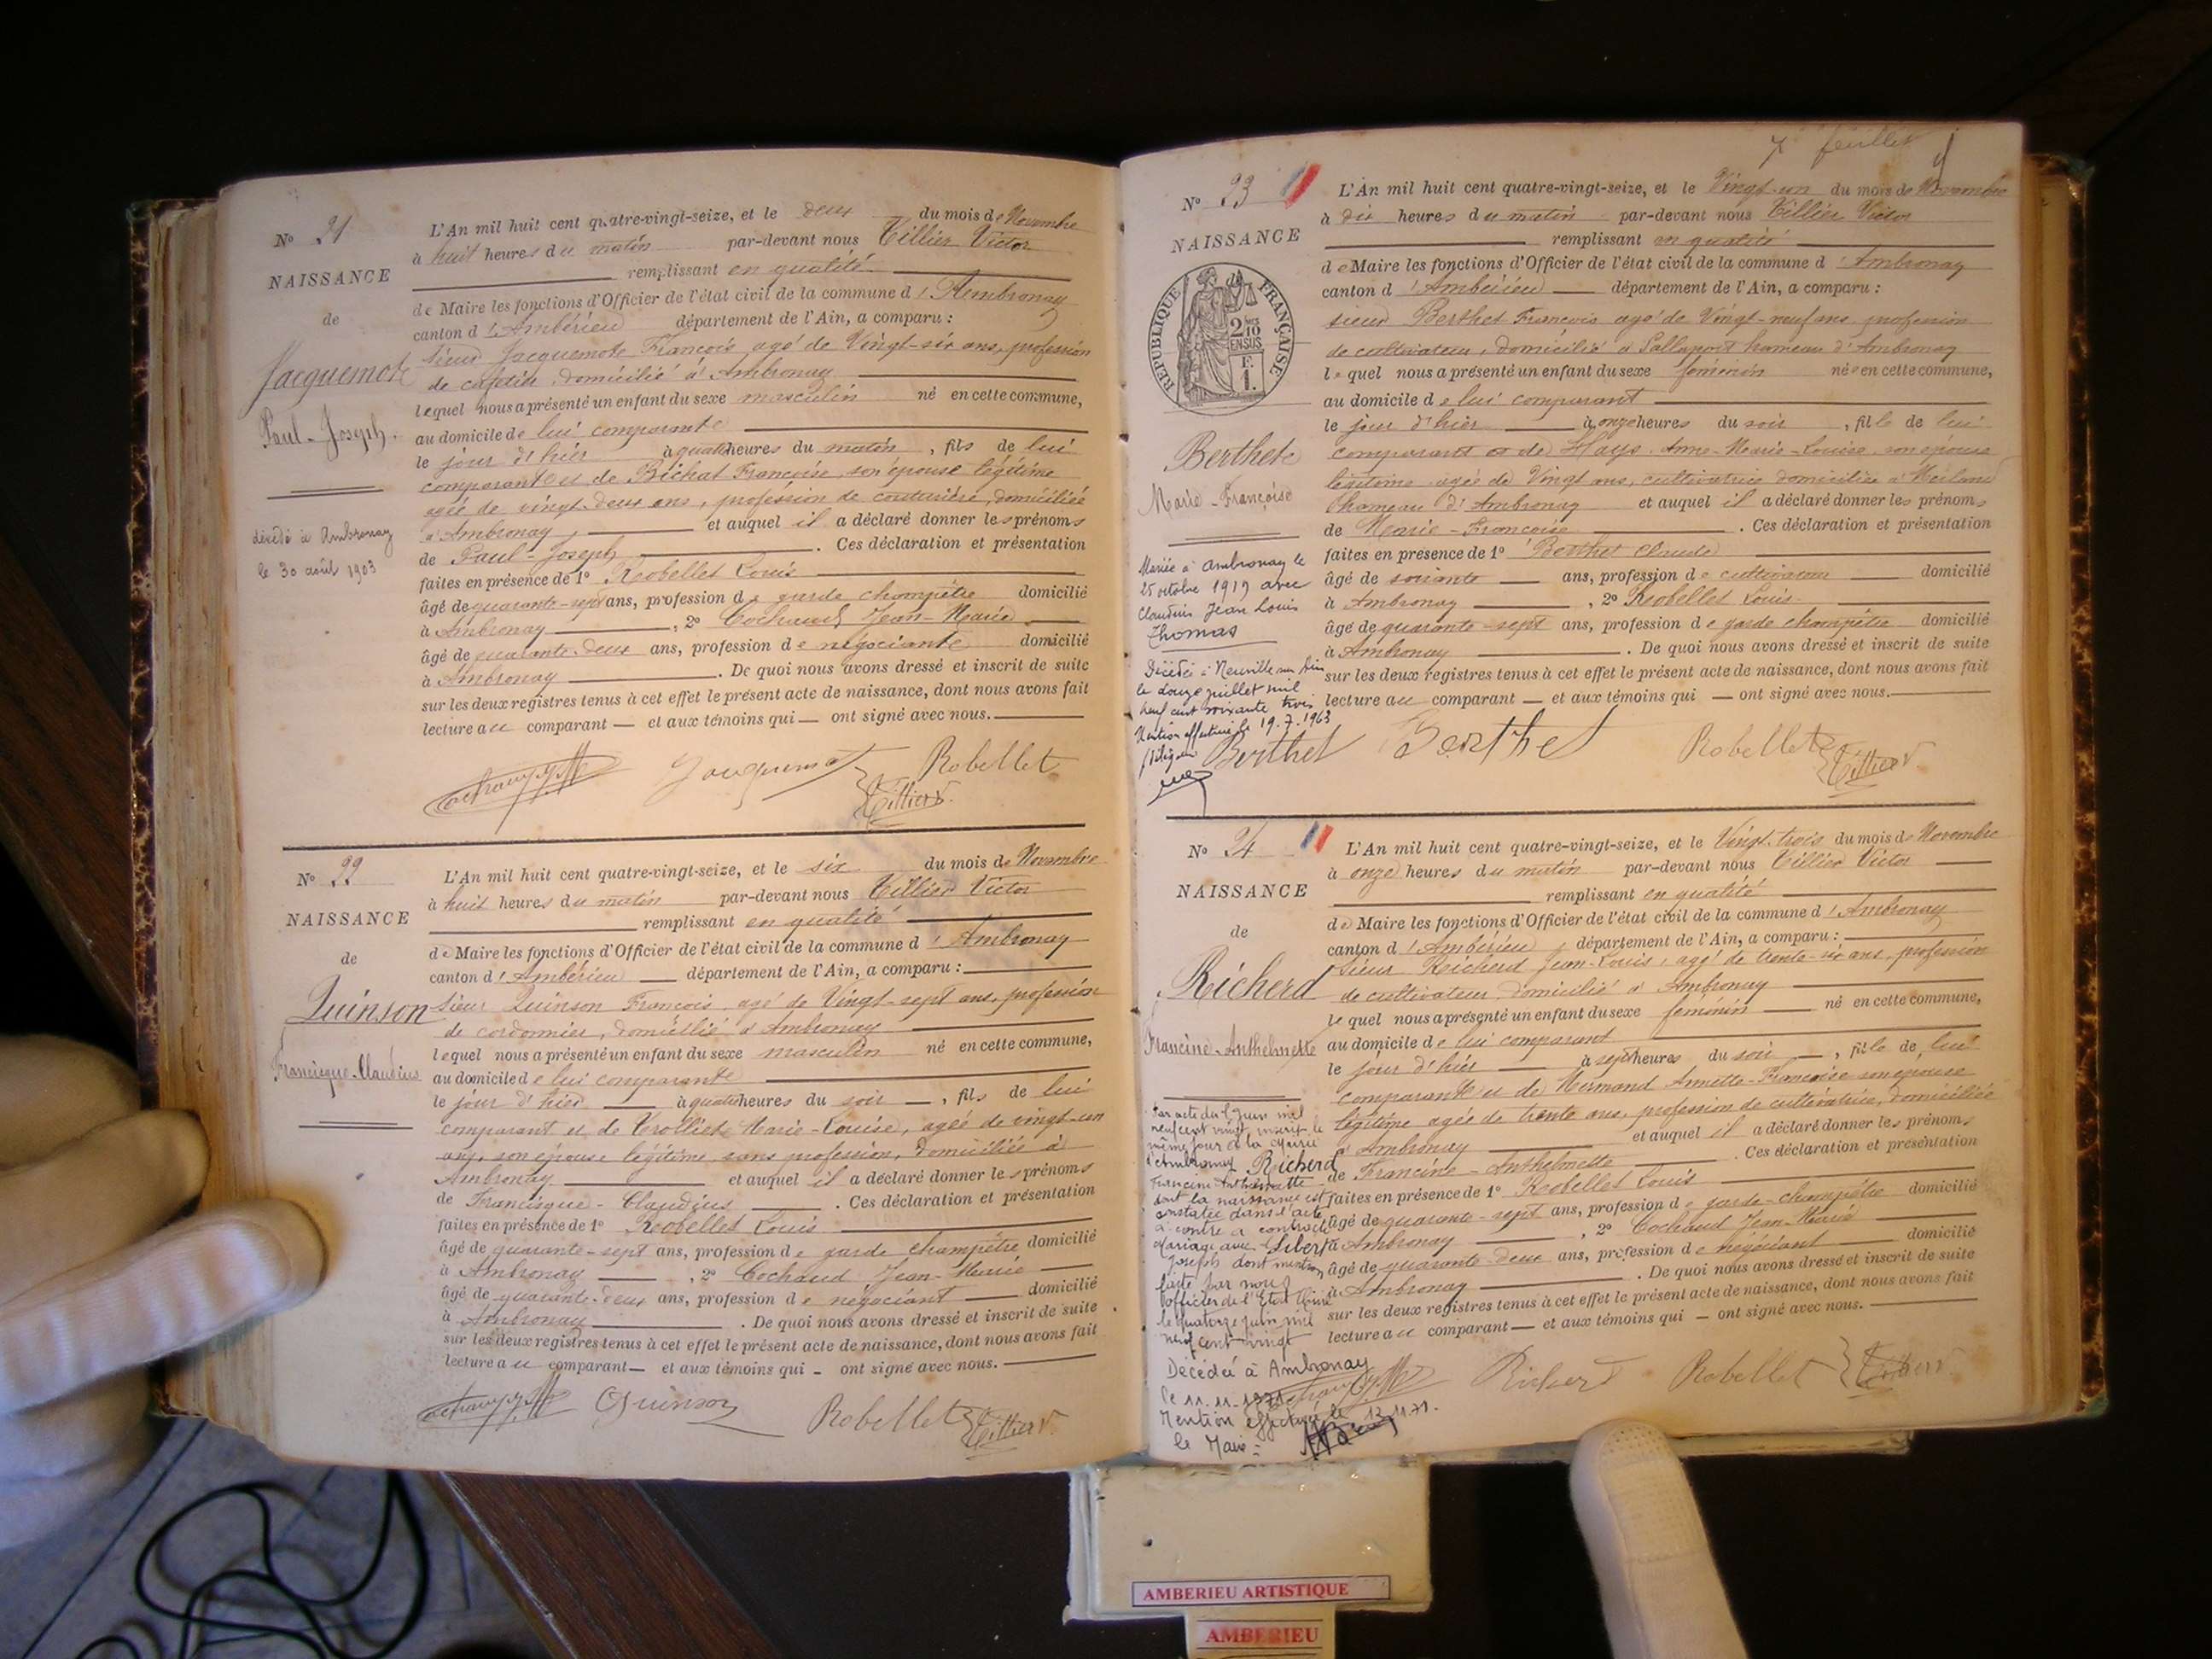 N° 21
NAISSANCE
de
Jacquemot
Paul-Joseph.
décédé à Ambronay
le 30 août 1903
L'An mil huit cent quatre-vingt-seize, et le deux du mois de Novembre
à huit heures du matin par-devant nous Tillier Victor
remplissant en qualité
de Maire les fonctions d'Officier de l'état civil de la commune d'Ambronay
canton d'Ambérieu département de l'Ain, a comparu :
sieur Jacquemot François agé de Vingt-six ans, profession
de cafetier domicilié à Ambronay
lequel nous a présenté un enfant du sexe masculin né en cette commune,
au domicile de lui comparant
le jour d'hier à quatre heures du matin, fils de lui
comparant et de Bichat Françoise, son épouse légitime
agée de vingt-deux ans, profession de couturière, domiciliée
à Ambronay et auquel il a déclaré donner les prénoms
de Paul-Joseph. Ces déclaration et présentation
faites en présence de 1° Robellet Louis
âgé de quarante-sept ans, profession de garde champêtre domicilié
à Ambronay, 2° Cochaud Jean-Marie
âgé de quarante-deux ans, profession de négociant domicilié
à Ambronay. De quoi nous avons dressé et inscrit de suite
sur les deux registres tenus à cet effet le présent acte de naissance, dont nous avons fait
lecture au comparant et aux témoins qui ont signé avec nous.
Jacquemot Robellet
Tillier V.
N° 22
NAISSANCE
de
Quinson
Francisque-Claudius
L'An mil huit cent quatre-vingt-seize, et le six du mois de Novembre
à huit heures du matin par-devant nous Tillier Victor
remplissant en qualité
de Maire les fonctions d'Officier de l'état civil de la commune d'Ambronay
canton d'Ambérieu département de l'Ain, a comparu :
sieur Quinson François, agé de Vingt-sept ans, profession
de cordonnier, domicilié à Ambronay
lequel nous a présenté un enfant du sexe masculin né en cette commune,
au domicile de lui comparant
le jour d'hier à quatre heures du soir, fils de lui
comparant et de Trolliet Marie-Louise, agée de vingt-un
ans, son épouse légitime, sans profession, domiciliée à
Ambronay et auquel il a déclaré donner les prénoms
de Francisque-Claudius. Ces déclaration et présentation
faites en présence de 1° Robellet Louis
âgé de quarante-sept ans, profession de garde champêtre domicilié
à Ambronay, 2° Cochaud Jean-Marie
âgé de quarante-deux ans, profession de négociant domicilié
à Ambronay. De quoi nous avons dressé et inscrit de suite
sur les deux registres tenus à cet effet le présent acte de naissance, dont nous avons fait
lecture au comparant et aux témoins qui ont signé avec nous.
Quinson Robellet Tillier V.
7e feuillet
N° 23
NAISSANCE
REPUBLIQUE FRANÇAISE
2 10 EN SUS
F. 1.
Berthet
Marie-Françoise
Mariée à Ambronay le
25 octobre 1919 avec
Claudius Jean Louis
Thomas
Décédée à Neuville sur Ain
le douze juillet mil
neuf cent soixante trois
Mention effectuée le 19.7.1963
L'An mil huit cent quatre-vingt-seize, et le Vingt-un du mois de Novembre
à dix heures du matin par-devant nous Tillier Victor
remplissant en qualité
de Maire les fonctions d'Officier de l'état civil de la commune d'Ambronay
canton d'Ambérieu département de l'Ain, a comparu :
sieur Berthet François agé de Vingt-neuf ans profession
de cultivateur, domicilié à hameau d'Ambronay
lequel nous a présenté un enfant du sexe féminin née en cette commune,
au domicile de lui comparant
le jour d'hier à onze heures du soir, fille de lui
comparant et de Hays Anne-Marie-Louise, son épouse
légitime agée de Vingt ans, cultivatrice domiciliée à
hameau d'Ambronay et auquel il a déclaré donner les prénoms
de Marie-Françoise. Ces déclaration et présentation
faites en présence de 1° Berthet Claude
âgé de soixante ans, profession de cultivateur domicilié
à Ambronay, 2° Robellet Louis
âgé de quarante-sept ans, profession de garde champêtre domicilié
à Ambronay. De quoi nous avons dressé et inscrit de suite
sur les deux registres tenus à cet effet le présent acte de naissance, dont nous avons fait
lecture au comparant et aux témoins qui ont signé avec nous.
Berthet Berthet Robellet Tillier V.
N° 24
NAISSANCE
de
Richerd
Francine-Anthelmette
Par acte du Juin mil
neuf cent vingt inscrit le
même jour à la Mairie
d'Ambronay Richerd
Francine Anthelmette
dont la naissance est
constatée dans l'acte
ci contre a contracté
Mariage avec
Joseph dont mention
faite par nous
officier de l'Etat Civil
le quatorze juin mil
neuf cent vingt
Décédée à Ambronay
le 11.11.1971
Mention effectuée le 12.11.71.
le Maire :
L'An mil huit cent quatre-vingt-seize, et le Vingt-trois du mois de Novembre
à onze heures du matin par-devant nous Tillier Victor
remplissant en qualité
de Maire les fonctions d'Officier de l'état civil de la commune d'Ambronay
canton d'Ambérieu, département de l'Ain, a comparu :
sieur Richerd Jean-Louis, agé de trente-six ans, profession
de cultivateur domicilié à Ambronay
lequel nous a présenté un enfant du sexe féminin né en cette commune,
au domicile de lui comparant
le jour d'hier à sept heures du soir, fille de lui
comparant et de Mermand Annette-Françoise son épouse
légitime agée de trente ans, profession de cultivatrice, domiciliée
à Ambronay et auquel il a déclaré donner les prénoms
de Francine-Anthelmette. Ces déclaration et présentation
faites en présence de 1° Robellet Louis
âgé de quarante-sept ans, profession de garde-champêtre domicilié
à Ambronay, 2° Cochaud Jean-Marie
âgé de quarante-deux ans, profession de négociant domicilié
à Ambronay. De quoi nous avons dressé et inscrit de suite
sur les deux registres tenus à cet effet le présent acte de naissance, dont nous avons fait
lecture au comparant et aux témoins qui ont signé avec nous.
Richerd Robellet Tillier V
AMBERIEU ARTISTIQUE
AMBERIEU